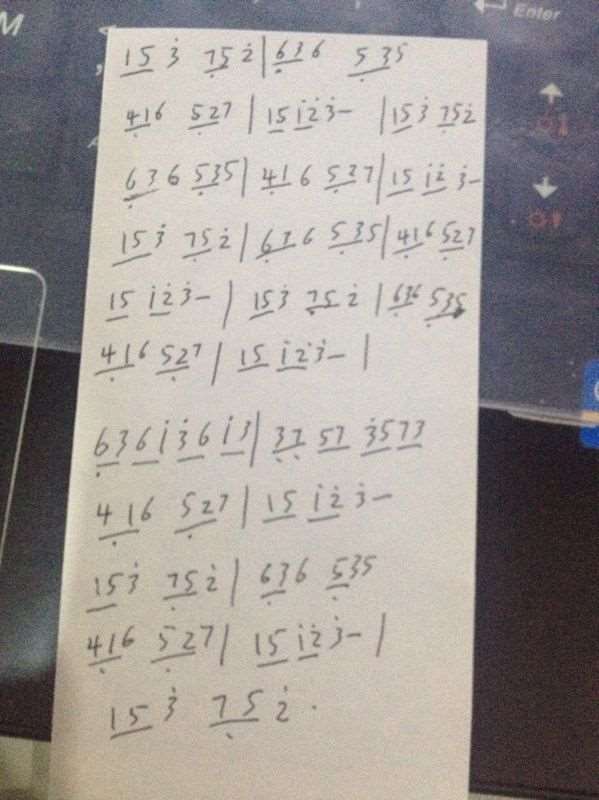 M
Enter
15 3̇ 75 2̇ | 636 535
416 527 | 15 1̇2̇ 3̇– | 15 3̇ 752̇
636 535 | 416 527 | 15 1̇2̇ 3̇–
15 3̇ 75 2̇ | 636 535 | 416 527
15 1̇2̇ 3̇– | 15 3̇ 75 2̇ | 636 535
416 527 | 15 1̇2̇ 3̇– |
6361̇3̇6 1̇3 | 37 57 3̇573
416 527 | 15 1̇2̇ 3̇–
15 3̇ 75 2̇ | 636 535
416 527 | 15 1̇2̇ 3̇– |
15 3̇ 75 2̇ .